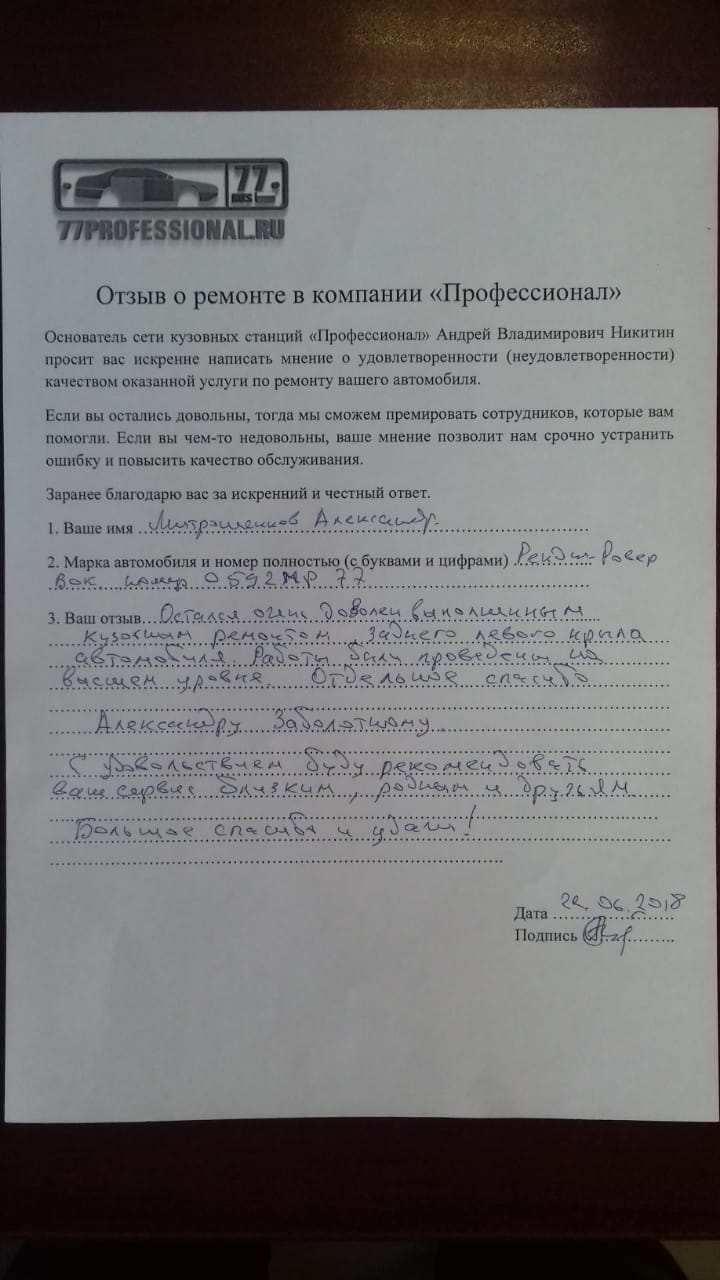 77
RUS
77PROFESSIONAL.RU
Отзыв о ремонте в компании «Профессионал»
Основатель сети кузовных станций «Профессионал» Андрей Владимирович Никитин
просит вас искренне написать мнение о удовлетворенности (неудовлетворенности)
качеством оказанной услуги по ремонту вашего автомобиля.
Если вы остались довольны, тогда мы сможем премировать сотрудников, которые вам
помогли. Если вы чем-то недовольны, ваше мнение позволит нам срочно устранить
ошибку и повысить качество обслуживания.
Заранее благодарю вас за искренний и честный ответ.
1. Ваше имя Митрошенков Александр.
2. Марка автомобиля и номер полностью (с буквами и цифрами) Рендж-Ровер
Вок номер О592МР 77
3. Ваш отзыв Остался очень доволен выполненным
кузовным ремонтом заднего левого крыла
автомобиля. Работы были проведены на
высшем уровне. Отдельное спасибо
Александру Заболотному.
С удовольствием буду рекомендовать
ваш сервис близким, родным и друзьям
Большое спасибо и удачи!
Дата 22.06.2018
Подпись